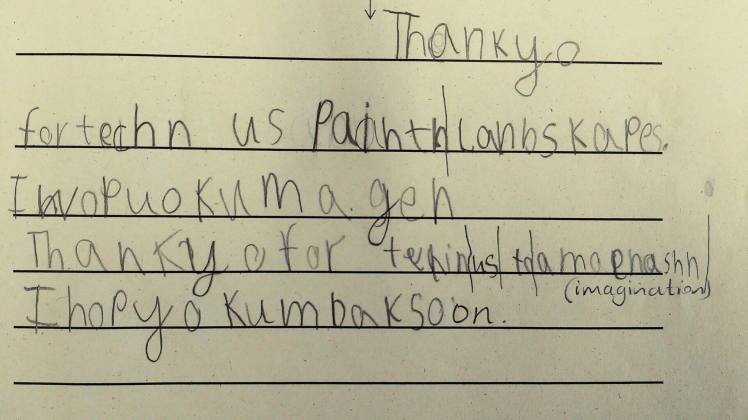 Thankyo
for techn us Painth lanbskapes.
I wopuokuma.gen
Thankyo for tehin us to amaenashn
(imagination)
I hopyo kumbaksoon.